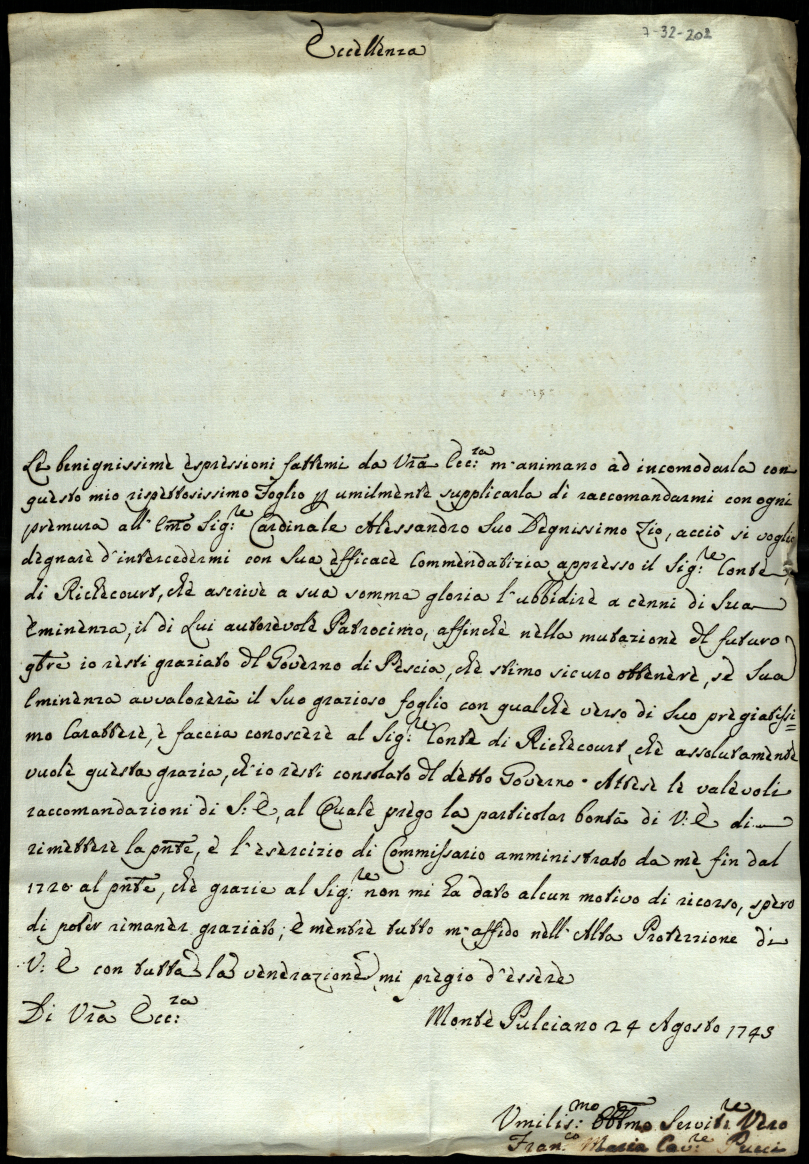 7-32-202
Eccellenza
Le benignissime espressioni fattemi da Vrã Ecc:za m'animano ad incomodarla con
questo mio rispettosissimo Foglio p umilmente supplicarla di raccomandarmi con ogni
premura all'Emo Sig:re Cardinale Alessandro Suo Degnissimo Zio, acciò si voglia
degnare d'intercedermi con Sua efficace Commendatizia appresso il Sig:re Conte
di Richecourt, che ascrive a sua somma gloria l'ubbidire a cenni di Sua
Eminenza, il di Lui autorevole Patrocinio, affinche nella mutazione del futuro
9bre io resti graziato del Governo di Pescia, che stimo sicuro ottenere, se Sua
Eminenza avvalorerà il Suo grazioso foglio con qualche verso di Suo pregiatissi=
mo Carattere, e faccia conoscere al Sig:re Conte di Richecourt, che assolutamente
vuole questa grazia, ch'io resti consolato del detto Governo. Attese le valevoli
raccomandazioni di S: E, al Quale prego la particolar bontà di V: E di
rimettere la pñte, e l'esercizio di Commissario amministrato da me fin dal
1720 al pñte, che grazie al Sig:re non mi ha dato alcun motivo di ricorso, spero
di poter rimaner graziato; e mentre tutto m'affido nell'Alta Protezzione di
V: E con tutta la venerazione mi pregio d'essere
Di Vrã Ecc:za
Monte Pulciano 24 Agosto 1743
Umilis:mo Obblmo Servit:re Vero
Fran:co Maria Cav:re Pucci